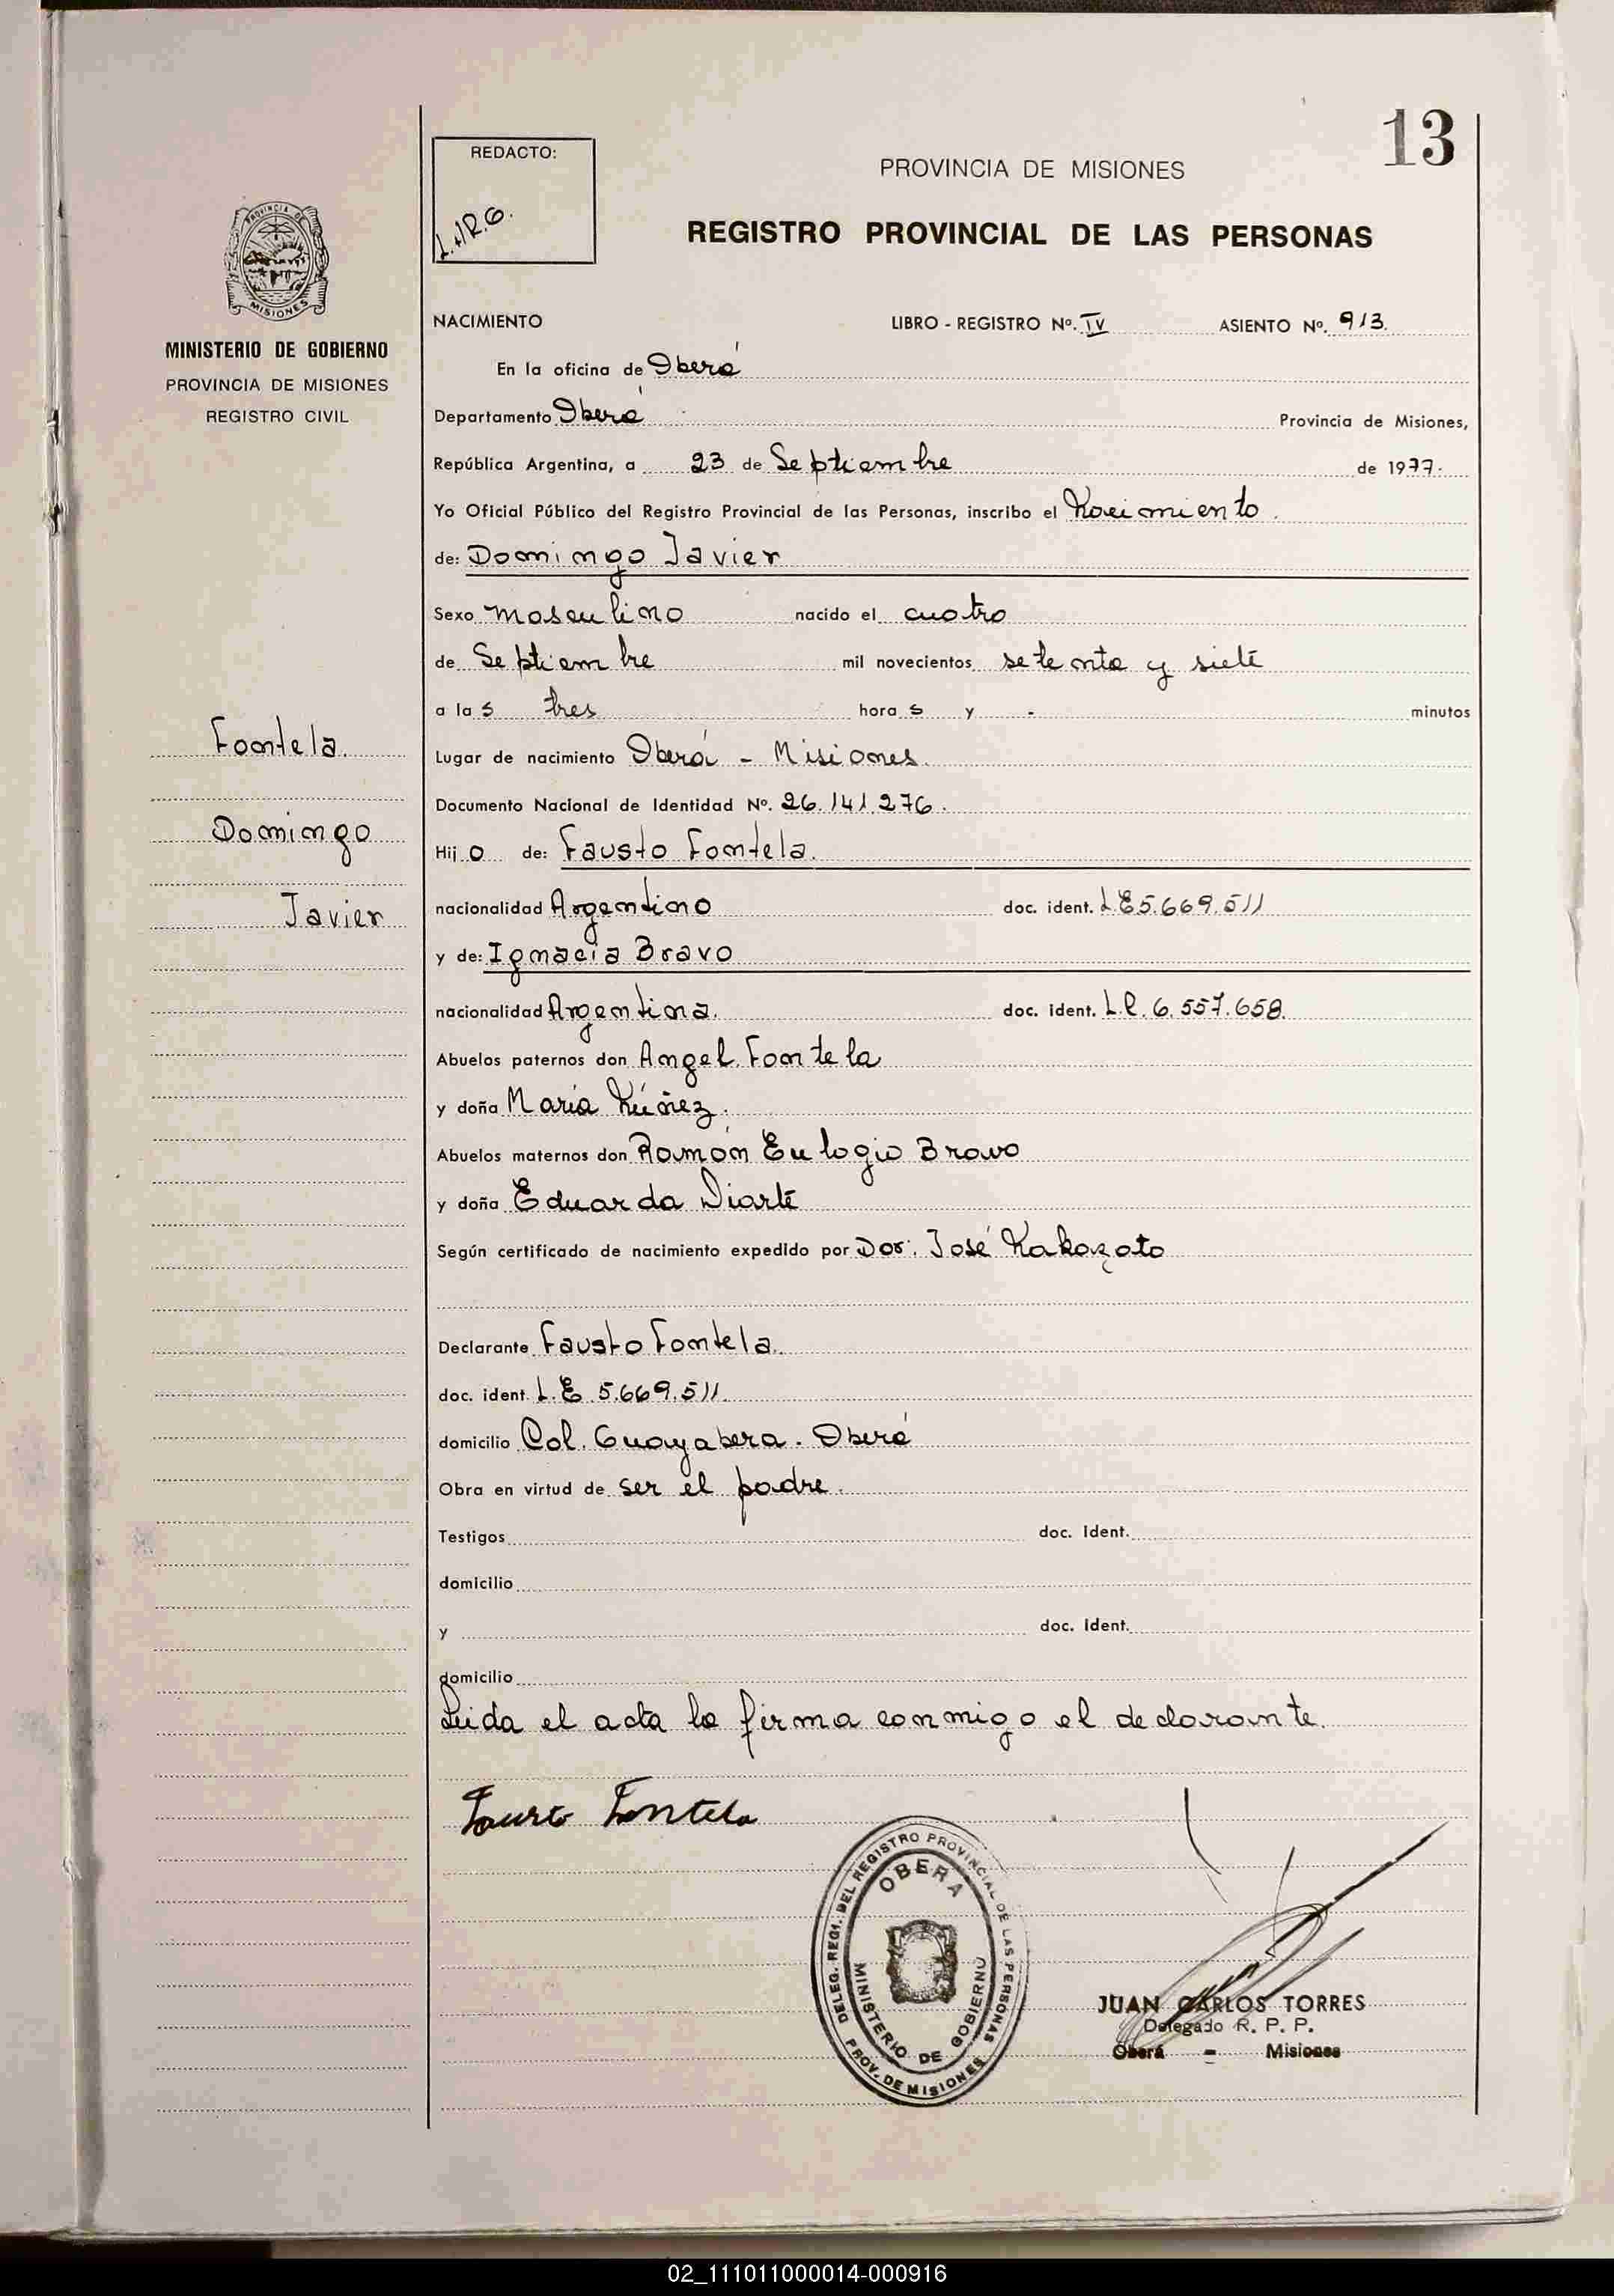 13
REDACTO:
I.R.G.
PROVINCIA DE MISIONES
REGISTRO PROVINCIAL DE LAS PERSONAS
PROVINCIA DE
MISIONES
MINISTERIO DE GOBIERNO
PROVINCIA DE MISIONES
REGISTRO CIVIL
Fontela.
Domingo
Javier
NACIMIENTO LIBRO - REGISTRO Nº. IV ASIENTO Nº. 913.
En la oficina de Oberá
Departamento Oberá Provincia de Misiones,
República Argentina, a 23 de Septiembre de 1977.
Yo Oficial Público del Registro Provincial de las Personas, inscribo el Nacimiento.
de: Domingo Javier
Sexo masculino nacido el cuatro
de Septiembre mil novecientos setenta y siete
a las tres horas y - minutos
Lugar de nacimiento Oberá - Misiones.
Documento Nacional de Identidad Nº. 26.141.276.
Hijo de: Fausto Fontela.
nacionalidad Argentino doc. ident. L.E 5.669.511
y de: Ignacia Bravo
nacionalidad Argentina. doc. ident. L.C. 6.557.658.
Abuelos paternos don Angel Fontela
y doña María Núñez.
Abuelos maternos don Ramón Eulogio Bravo
y doña Eduarda Diarte
Según certificado de nacimiento expedido por Dor. José Nakazato
Declarante Fausto Fontela.
doc. ident. L.E 5.669.511.
domicilio Col. Guayabera. Oberá
Obra en virtud de ser el padre.
Testigos doc. ident.
domicilio
y doc. ident.
domicilio
Leida el acta la firma conmigo el declarante.
Fausto Fontela
DELEG. REG. DEL REGISTRO PROVINCIAL DE LAS PERSONAS
OBERA
MINISTERIO DE GOBIERNO
PROV. DE MISIONES
JUAN CARLOS TORRES
Delegado R. P. P.
Oberá - Misiones
02_111011000014-000916